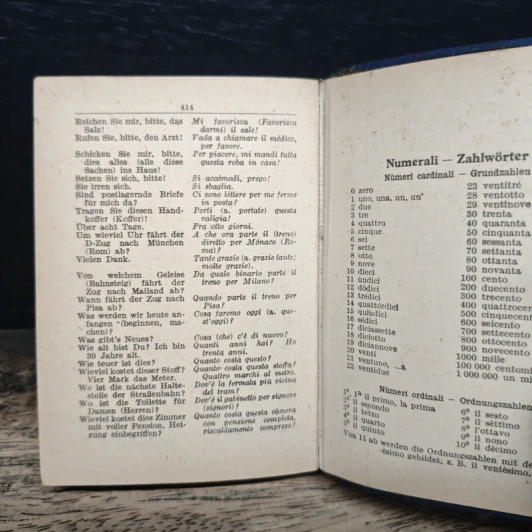 414
Reichen Sie mir, bitte, das
Salz!
Rufen Sie, bitte, den Arzt!
Schicken Sie mir, bitte,
dies alles (alle diese
Sachen) ins Haus!
Setzen Sie sich, bitte!
Sie irren sich.
Sind postlagernde Briefe
für mich da?
Tragen Sie diesen Hand-
koffer (Koffer)!
Über acht Tage.
Um wieviel Uhr fährt der
D-Zug nach München
(Rom) ab?
Vielen Dank.
Von welchem Geleise
(Bahnsteig) fährt der
Zug nach Mailand ab?
Wann fährt der Zug nach
Pisa ab?
Was werden wir heute an-
fangen (beginnen, ma-
chen)?
Was gibt's Neues?
Wie alt bist Du? Ich bin
30 Jahre alt.
Wie teuer ist dies?
Wieviel kostet dieser Stoff?
Vier Mark das Meter.
Wo ist die nächste Halte-
stelle der Straßenbahn?
Wo ist die Toilette für
Damen (Herren)?
Wieviel kostet dies Zimmer
mit voller Pension, Hei-
zung einbegriffen?
Mi favorisca (Favorisca
darmi) il sale!
Vada a chiamare il mèdico,
per favore.
Per piacere, mi mandi tutta
questa roba in casa!
Si accòmodi, prego!
Si sbaglia.
Ci sono lèttere per me ferme
in posta?
Porti (a. portate) questa
valigia!
Fra otto giorni.
A che ora parte il (treno)
diretto per Mònaco (Ro-
ma)?
Tante grazie (a. grazie tante;
molte grazie).
Da quale binario parte il
treno per Milano?
Quando parte il treno per
Pisa?
Cosa faremo oggi (a. que-
st'oggi)?
Cosa (che) c'è di nuovo?
Quanti anni hai? Ho
trenta anni.
Quanto costa questo?
Quanto costa questa stoffa?
Quattro marchi al metro.
Dov'è la fermata più vicina
del tram?
Dov'è il gabinetto per signore
(signori)?
Quanto costa questa càmera
con pensione completa,
riscaldamento compreso?
Numerali — Zahlwörter
Nùmeri cardinali — Grundzahlen
0 zero
1 uno, una, un, un'
2 due
3 tre
4 quattro
5 cinque
6 sei
7 sette
8 otto
9 nove
10 dieci
11 ùndici
12 dódici
13 trédici
14 quattòrdici
15 quìndici
16 sédici
17 diciassette
18 diciotto
19 diciannove
20 venti
21 ventuno, ...a
22 ventidue
23 ventitré
28 ventotto
29 ventinove
30 trenta
40 quaranta
50 cinquanta
60 sessanta
70 settanta
80 ottanta
90 novanta
100 cento
200 duecento
300 trecento
400 quattrocento
500 cinquecento
600 seicento
700 settecento
800 ottocento
900 novecento
1000 mille
100 000 centomi
1 000 000 un m
Nùmeri ordinali — Ordnungszahlen
1º, 1ª il primo, la prima
2º il secondo
3º il terzo
4º il quarto
5º il quinto
6º il sesto
7º il sèttimo
8º l'ottavo
9º il nono
10º il dècimo
Von 11 ab werden die Ordnungszahlen mit de
-èsimo gebildet, z. B. il ventèsimo,